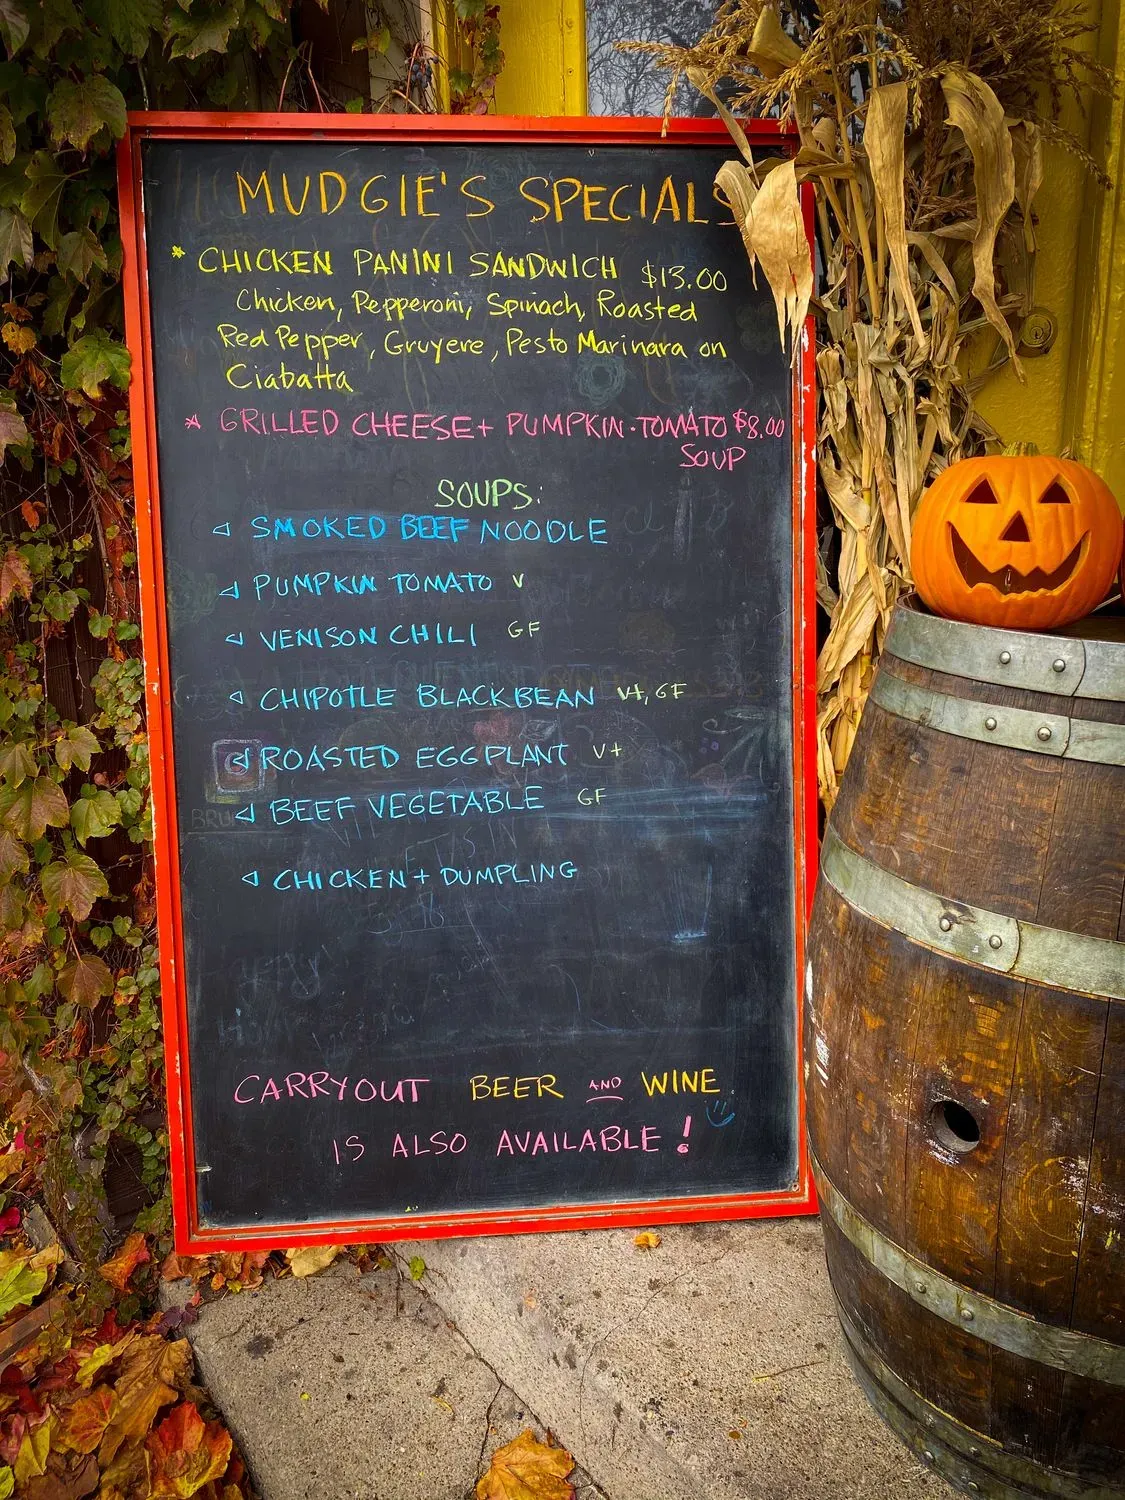 MUDGIE'S SPECIALS
* CHICKEN PANINI SANDWICH $13.00
Chicken, Pepperoni, Spinach, Roasted
Red Pepper, Gruyere, Pesto Marinara on
Ciabatta
* GRILLED CHEESE + PUMPKIN·TOMATO $8.00
SOUP
SOUPS:
SMOKED BEEF NOODLE
PUMPKIN TOMATO V
VENISON CHILI GF
CHIPOTLE BLACKBEAN V+, GF
ROASTED EGGPLANT V+
BEEF VEGETABLE GF
CHICKEN + DUMPLING
CARRYOUT BEER AND WINE
IS ALSO AVAILABLE!